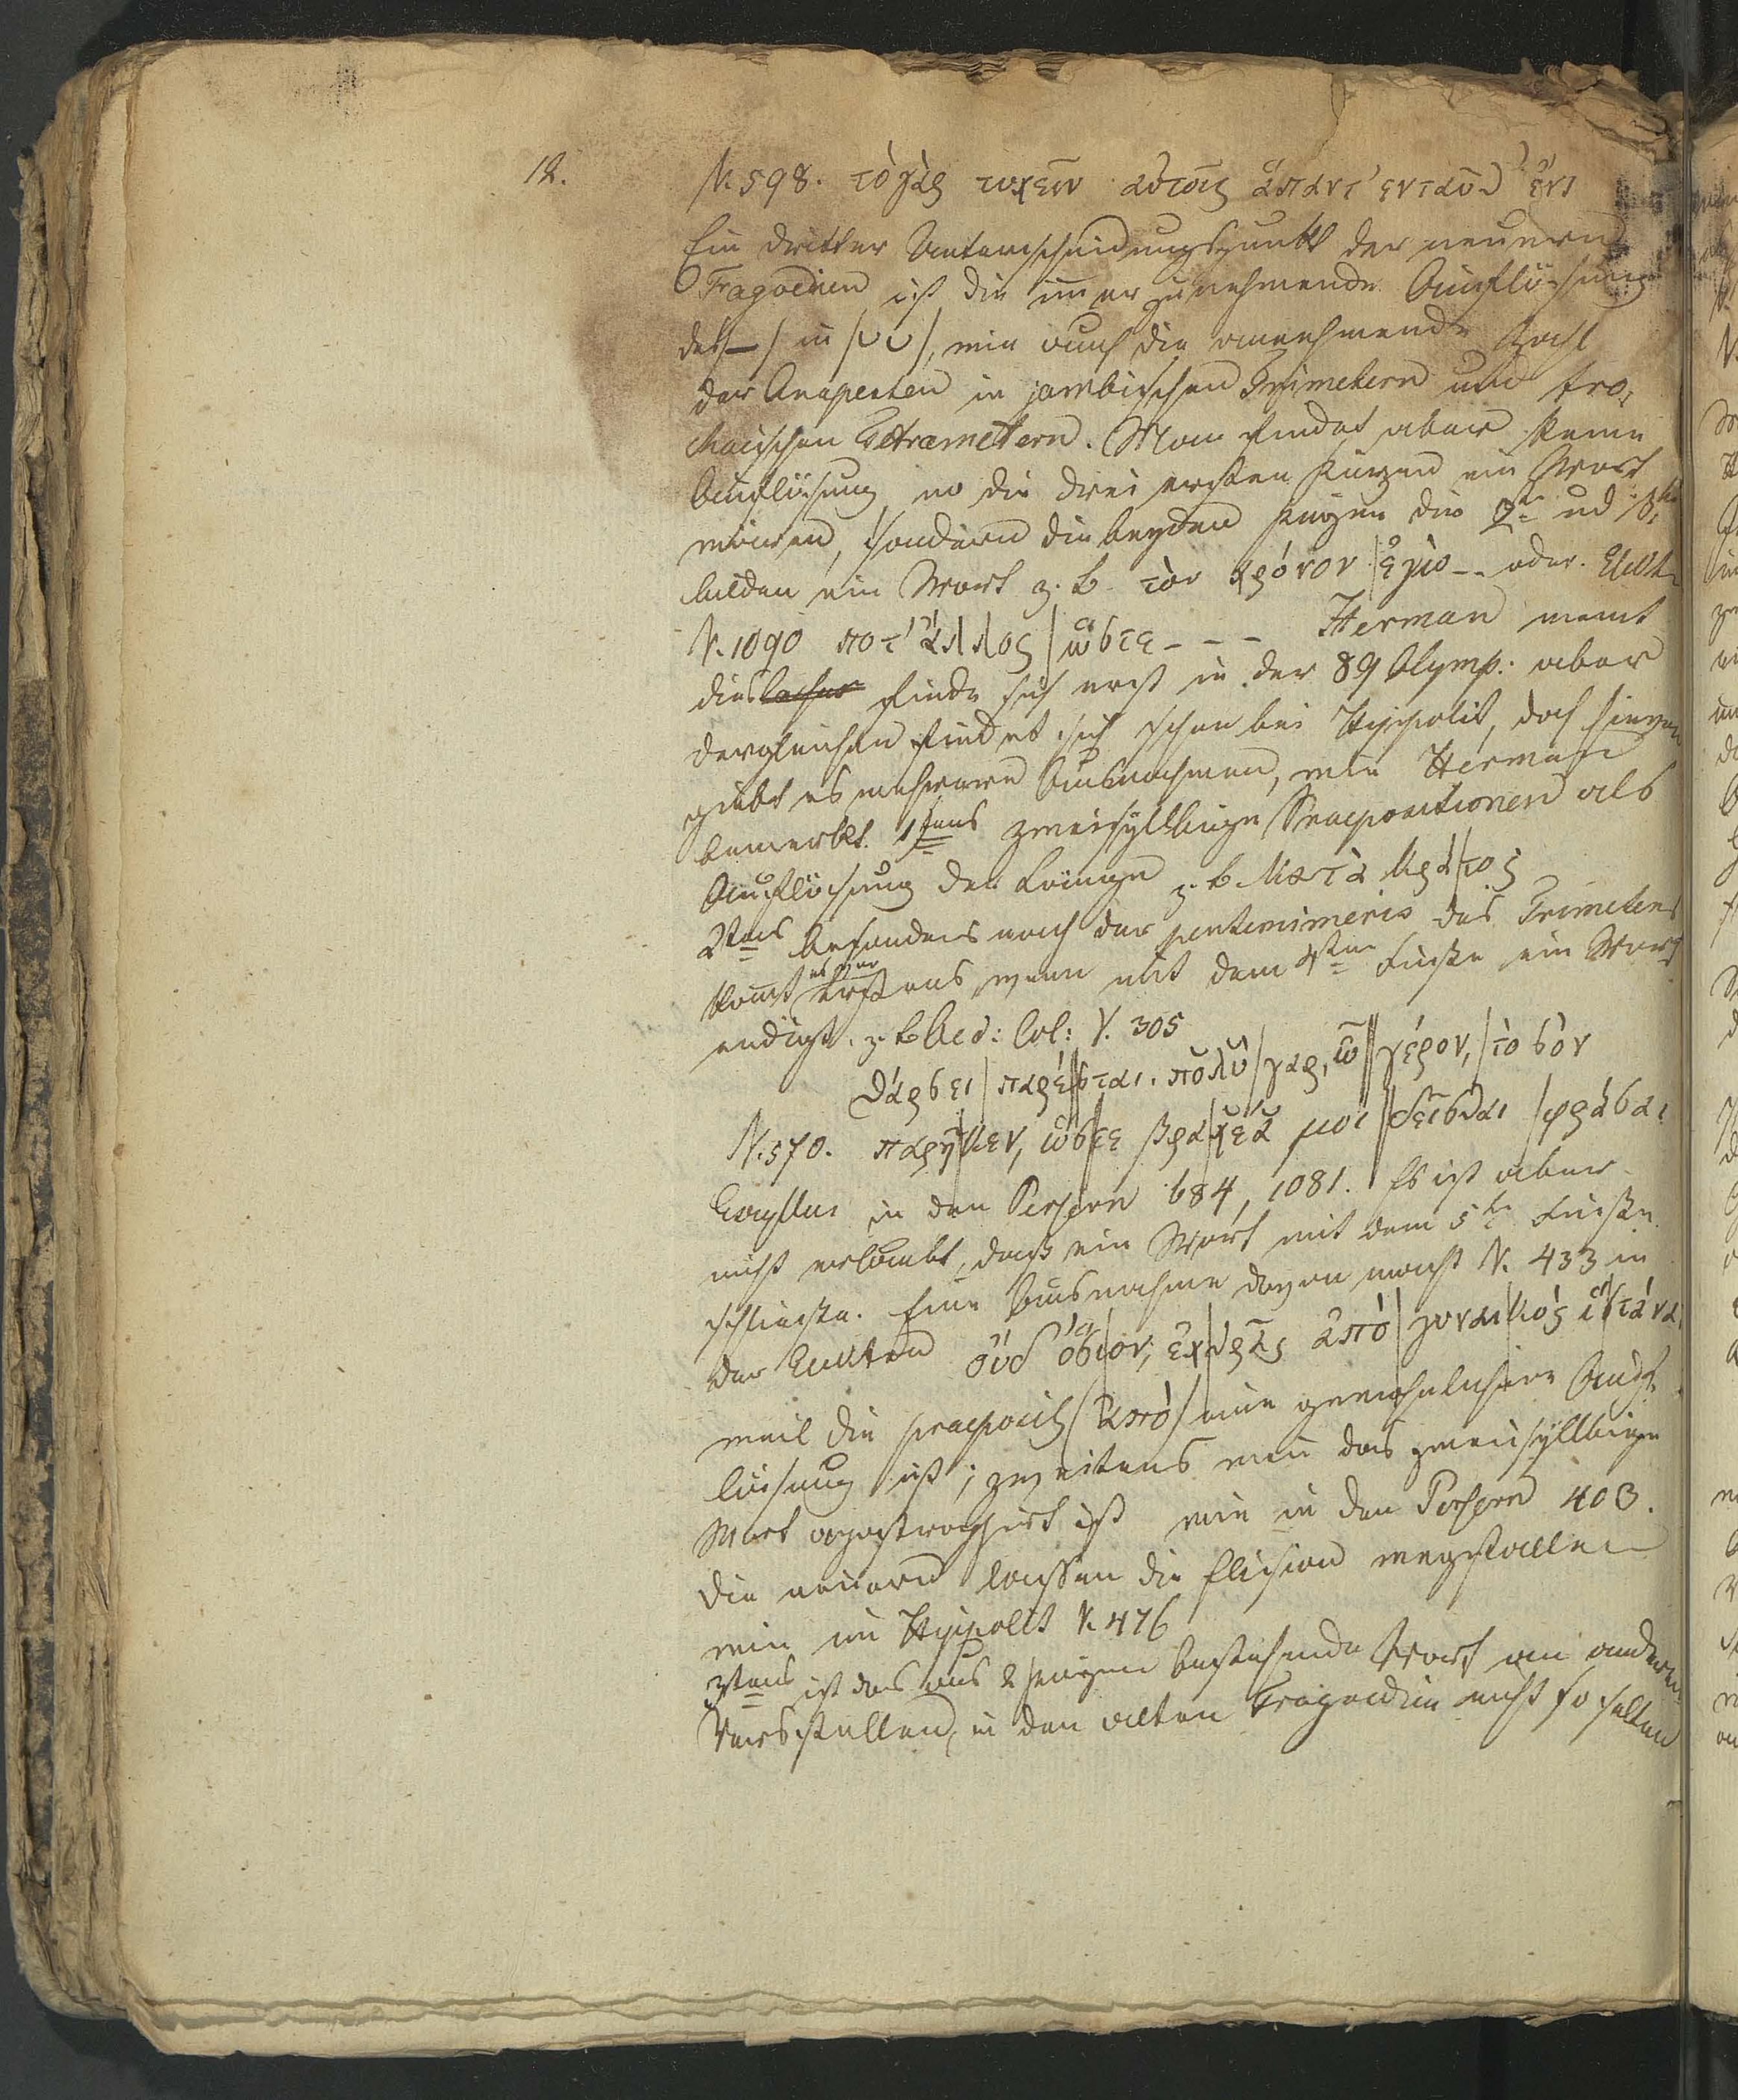 12.
V. 598. τὸ γὰρ τυχεῖν αὐτοῖς ἅπαντ' ενταῦθ' ἔνι
Ein dritter Unterscheidungspunkt der neuern
Tragoedien ist die imer zunehmende Auflösung
der /–/ in /υυ/, wie auch die zunehmende Zahl
der Anapesten in jambischen Trimetern und tro-
chaischen Tetrametern. Man findet aber keine
Auflösung, wo die drei ersten Kürzen ein Wort
wären, sondern die beyden Kürzen die 2te ud 3te
bilden ein Wort z. b. τὸν χρόνον / ἐγω -- oder. Elekt.
V. 1090 ποτ' ἄλλος / ὥστε - - - Herman meint
dies finde sich erst in der 89 Olymp: aber
dergleichen findet sich schon bei Hippolit, doch hievon
giebt es mehrere Ausnahmen, wie Herman
bemerkt. 1stens zweisyllbige Praepositionen als
Auflösung der Länge z. b. Μετὰ Κρά/τος
2tens besonders nach der pentemimeris des Trimeters
komt es vor erstens, wenn mit dem 4ten Fuße ein Wort
endigt. z. b. Oed: Col: V. 305
θάρσει / παρέ//σται. πολὺ / γαρ, ῶ // γέρον, / τὸ σὸν
V. 570. παρῆ/κεν, ὥσ//τε βρα/χέα μοι // δεῖσθαι / φράσαι
Eschyllus in den Persern 684, 1081. Es ist aber
nicht erlaubt, daß ein Wort mit dem 5te Fuße
schließe. Eine Ausnahme davon macht V. 433 in
der Elektra οὐδ' ὅσιον, ἐχ/θρᾶς ἀπὸ / γυναι/κὸς ἱ/στάναι
weil die praeposit (ἀπὸ) eine gewöhnlichere Auf-
lösung ist; zweitens wen das zweisyllbige
Wort apostrophirt ist wie in den Persern 403.
Die neuern lassen die Elision wegfallen
wie im Hippolit V. 476
3tens ist das aus 2 Kürzen bestehende Wort an anderen
Versstellen, in den alten Tragoedien nicht so selten